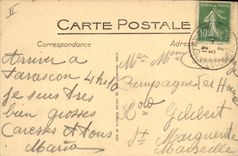 II
CARTE POSTALE
Correspondance
Adresse
Arriver a
Tarascon 4h10
je suis tres
bien grosses
Caresses a tous
Maria
Campagne
Gilibert
St Marguerite
Marseille
10